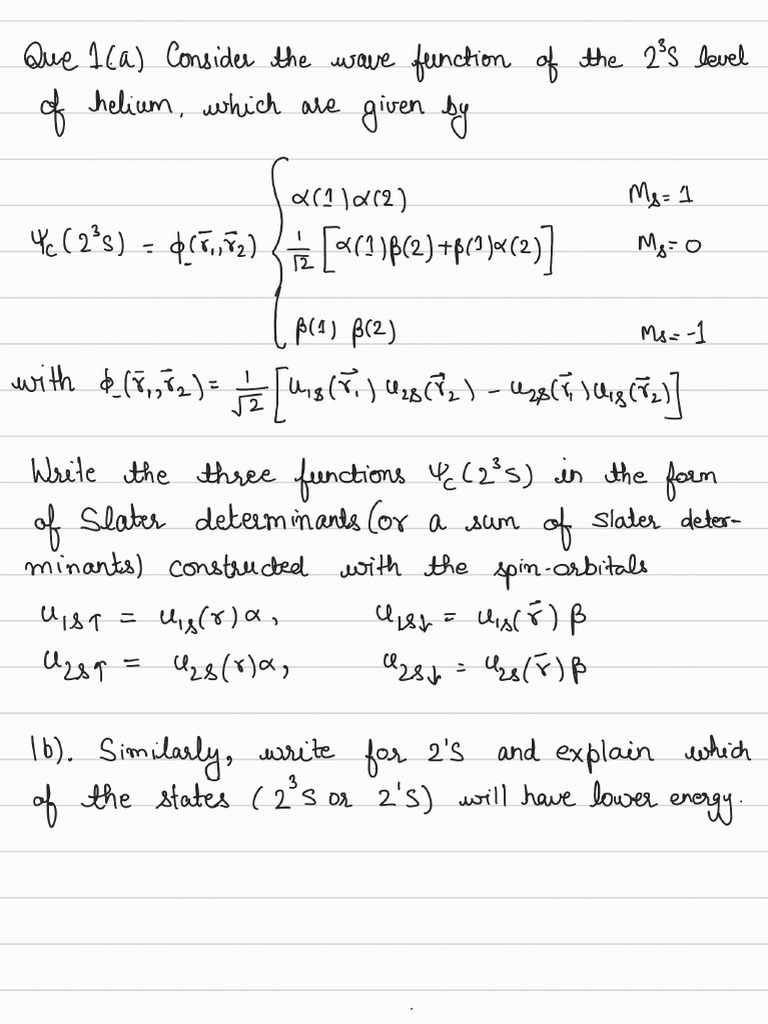 Que 1(a) Consider the wave function of the 2³S level
of helium, which are given by
α(1)α(2) Ms = 1
Ψc(2³S) = ϕ_(r̄₁,r̄₂) { 1/√2 [α(1)β(2)+β(1)α(2)] Ms = 0
β(1) β(2) Ms = -1
with ϕ_(r̄₁,r̄₂) = 1/√2 [u₁s(r⃗₁) u₂s(r⃗₂) - u₂s(r⃗₁) u₁s(r̄₂)]
Write the three functions Ψc(2³S) in the form
of Slater determinants (or a sum of slater deter-
minants) constructed with the spin-orbitals
u₁s↑ = u₁s(r)α, u₁s↓ = u₁s(r̄) β
u₂s↑ = u₂s(r)α, u₂s↓ = u₂s(r̄) β
1b). Similarly, write for 2'S and explain which
of the states (2³S or 2'S) will have lower energy.